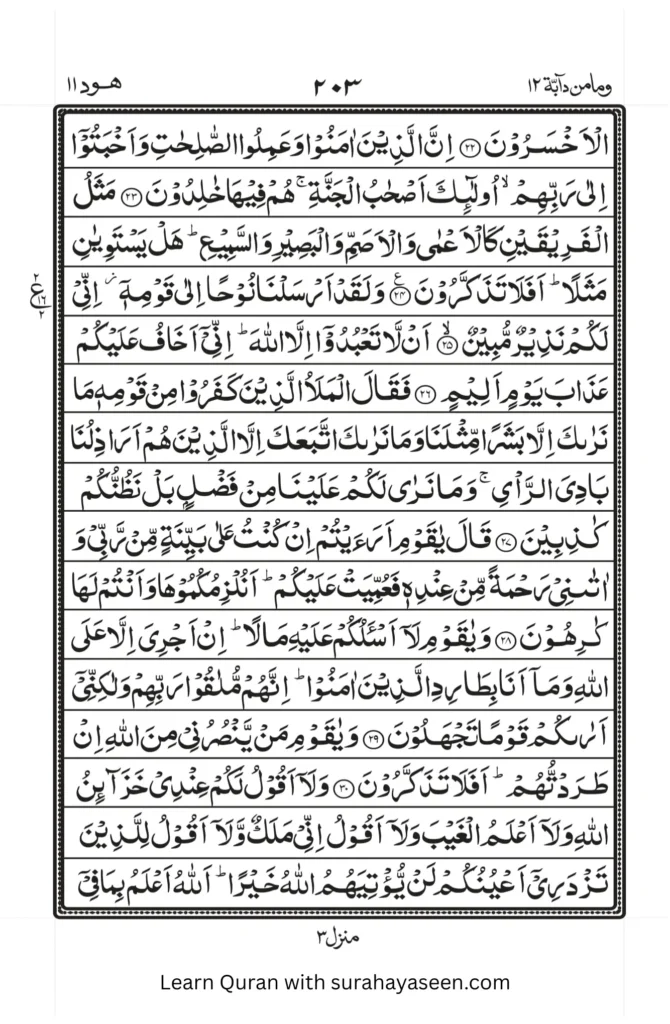 ومامن دآبة ١٢ ٢٠٣ هود ١١
الْاَخْسَرُوْنَ ﴿۲۲﴾ اِنَّ الَّذِيْنَ اٰمَنُوْا وَعَمِلُوا الصّٰلِحٰتِ وَاَخْبَتُوْۤا
اِلٰى رَبِّهِمْ ۙ اُولٰٓئِكَ اَصْحٰبُ الْجَنَّةِ ۚ هُمْ فِيْهَا خٰلِدُوْنَ ﴿۲۳﴾ مَثَلُ
الْفَرِيْقَيْنِ كَالْاَعْمٰى وَالْاَصَمِّ وَالْبَصِيْرِ وَالسَّمِيْعِ ؕ هَلْ يَسْتَوِيٰنِ
مَثَلًا ؕ اَفَلَا تَذَكَّرُوْنَ ﴿۲۴﴾ ع وَلَقَدْ اَرْسَلْنَا نُوْحًا اِلٰى قَوْمِهٖۤ ؗ اِنِّيْ
٢ ع ١٦ ٢
لَكُمْ نَذِيْرٌ مُّبِيْنٌ ﴿۲۵﴾ ۙ اَنْ لَّا تَعْبُدُوْۤا اِلَّا اللّٰهَ ؕ اِنِّيْۤ اَخَافُ عَلَيْكُمْ
عَذَابَ يَوْمٍ اَلِيْمٍ ﴿۲۶﴾ فَقَالَ الْمَلَاُ الَّذِيْنَ كَفَرُوْا مِنْ قَوْمِهٖ مَا
نَرٰىكَ اِلَّا بَشَرًا مِّثْلَنَا وَمَا نَرٰىكَ اتَّبَعَكَ اِلَّا الَّذِيْنَ هُمْ اَرَاذِلُنَا
بَادِيَ الرَّاْيِ ۚ وَمَا نَرٰى لَكُمْ عَلَيْنَا مِنْ فَضْلٍۭ بَلْ نَظُنُّكُمْ
كٰذِبِيْنَ ﴿۲۷﴾ قَالَ يٰقَوْمِ اَرَءَيْتُمْ اِنْ كُنْتُ عَلٰى بَيِّنَةٍ مِّنْ رَّبِّيْ وَ
اٰتٰىنِيْ رَحْمَةً مِّنْ عِنْدِهٖ فَعُمِّيَتْ عَلَيْكُمْ ؕ اَنُلْزِمُكُمُوْهَا وَاَنْتُمْ لَهَا
كٰرِهُوْنَ ﴿۲۸﴾ وَيٰقَوْمِ لَاۤ اَسْـَٔلُكُمْ عَلَيْهِ مَالًا ؕ اِنْ اَجْرِيَ اِلَّا عَلَى
اللّٰهِ وَمَاۤ اَنَا بِطَارِدِ الَّذِيْنَ اٰمَنُوْا ؕ اِنَّهُمْ مُّلٰقُوْا رَبِّهِمْ وَلٰكِنِّيْۤ
اَرٰىكُمْ قَوْمًا تَجْهَلُوْنَ ﴿۲۹﴾ وَيٰقَوْمِ مَنْ يَّنْصُرُنِيْ مِنَ اللّٰهِ اِنْ
طَرَدْتُّهُمْ ؕ اَفَلَا تَذَكَّرُوْنَ ﴿۳۰﴾ وَلَاۤ اَقُوْلُ لَكُمْ عِنْدِيْ خَزَآئِنُ
اللّٰهِ وَلَاۤ اَعْلَمُ الْغَيْبَ وَلَاۤ اَقُوْلُ اِنِّيْ مَلَكٌ وَّلَاۤ اَقُوْلُ لِلَّذِيْنَ
تَزْدَرِيْۤ اَعْيُنُكُمْ لَنْ يُّؤْتِيَهُمُ اللّٰهُ خَيْرًا ؕ اَللّٰهُ اَعْلَمُ بِمَا فِيْۤ
منزل ٣
Learn Quran with surahayaseen.com